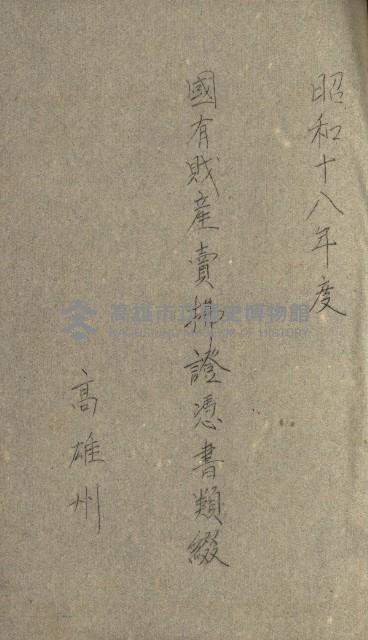 昭和十八年度
國有財産賣拂證憑書類綴
高雄州
高雄市立歷史博物館
KAOHSIUNG MUSEUM OF HISTORY